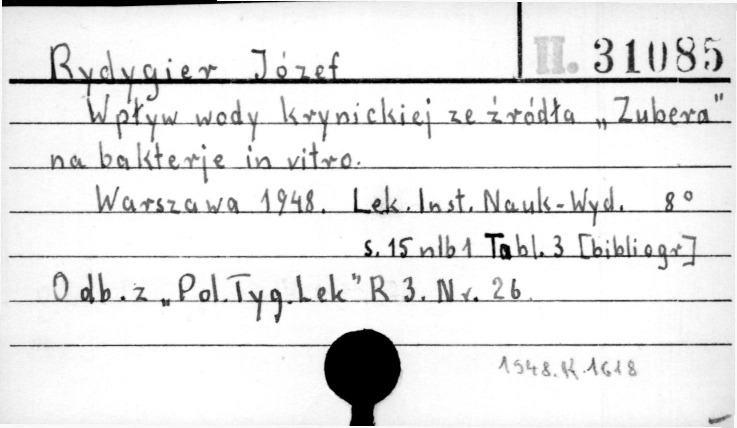 Rydygier Józef II. 31085
Wpływ wody krynickiej ze źródła „Zubera"
na bakterje in vitro.
Warszawa 1948. Lek. Inst. Nauk-Wyd. 8°
s. 15 nlb 1 Tabl. 3 [bibliogr]
Odb. z „Pol. Tyg. Lek" R 3. Nr. 26.
1948.K.1618